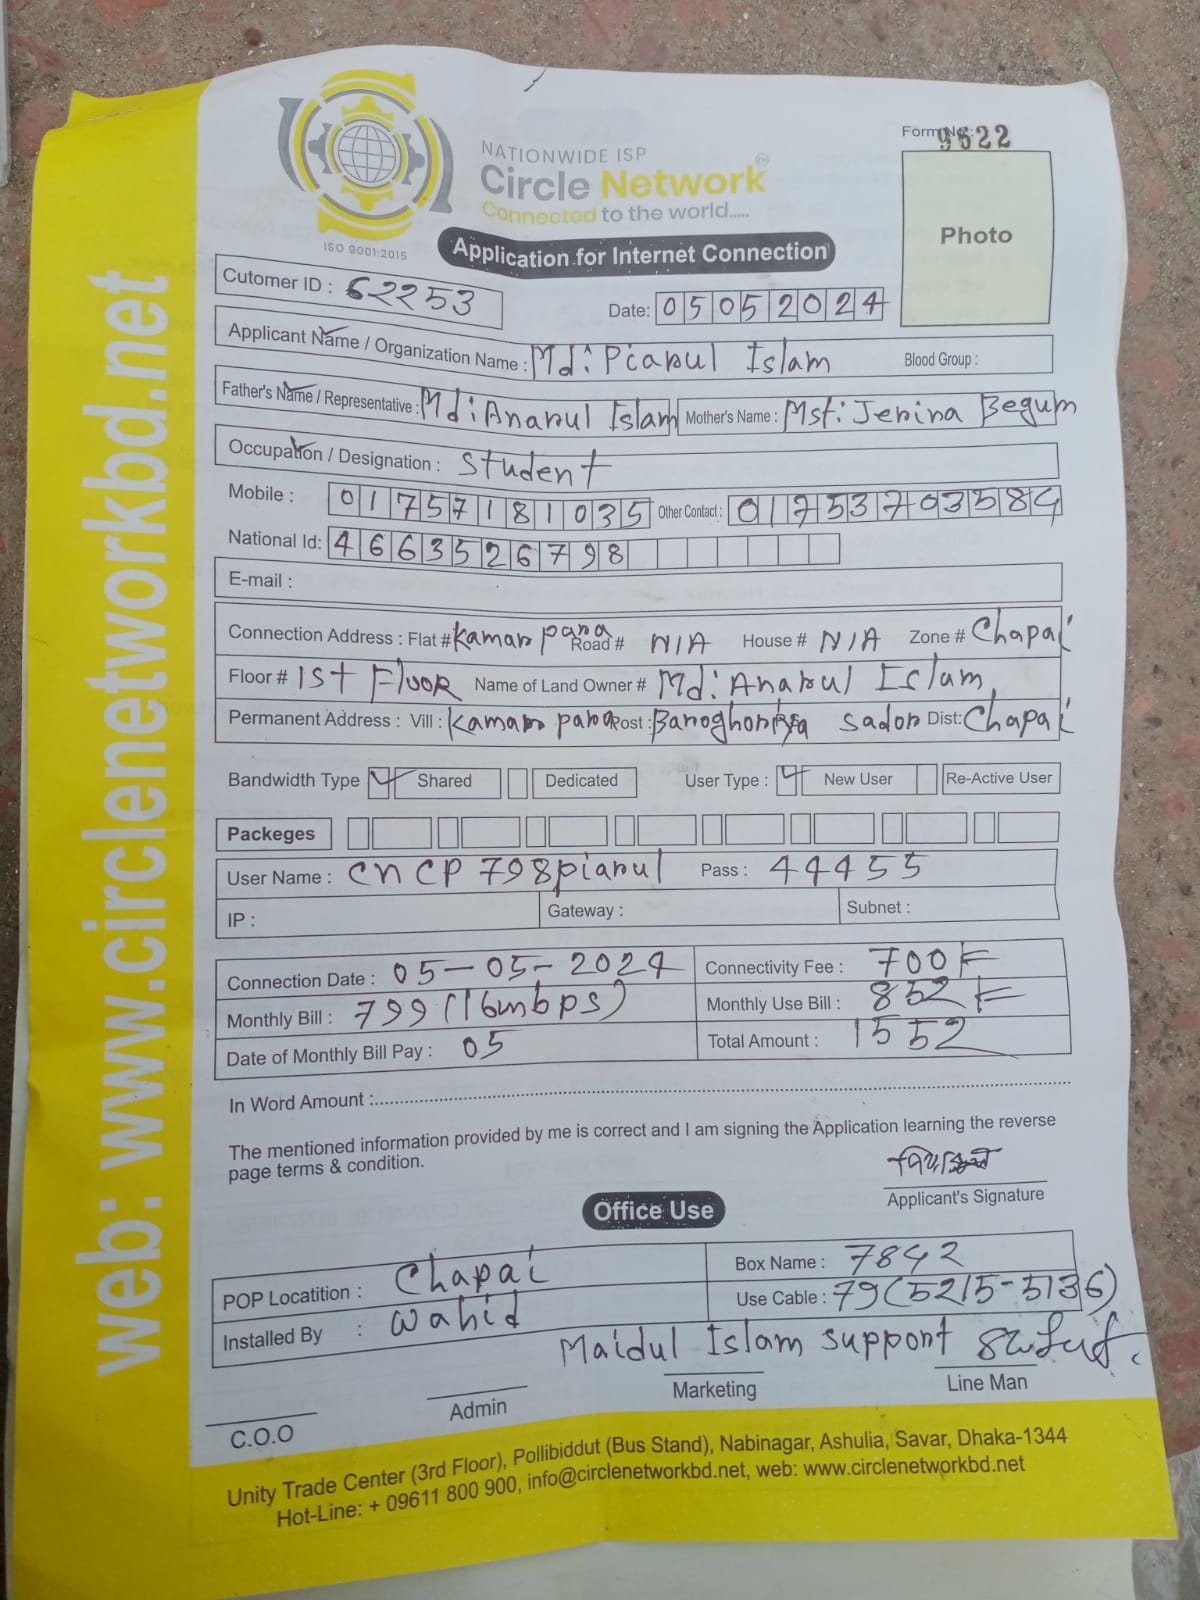 Form No: 9622
NATIONWIDE ISP
Circle Network TM
Connected to the world.....
ISO 9001:2015
Photo
Application for Internet Connection
Cutomer ID : 62253
Date: 05052024
Applicant Name / Organization Name : Md: Piarul Islam Blood Group :
Father's Name / Representative : Md: Anarul Islam Mother's Name : Mst: Jerina Begum
Occupation / Designation : Student
Mobile : 01757181035 Other Contact : 01753703584
National Id: 4663526798
E-mail :
Connection Address : Flat # Kamar para Road # N/A House # N/A Zone # Chapai
Floor # 1st Floor Name of Land Owner # Md: Anarul Islam
Permanent Address : Vill : Kamar para Post : Baroghoriya Sador Dist: Chapai
Bandwidth Type Shared Dedicated User Type : New User Re-Active User
Packeges
User Name : CNCP798piarul Pass : 44455
IP : Gateway : Subnet :
Connection Date : 05-05-2024 Connectivity Fee : 700/=
Monthly Bill : 799 (16mbps) Monthly Use Bill : 852/=
Date of Monthly Bill Pay : 05 Total Amount : 1552
In Word Amount :
The mentioned information provided by me is correct and I am signing the Application learning the reverse
page terms & condition.
Applicant's Signature
Office Use
POP Locatition : Chapai Box Name : 7842
Installed By : Wahid Use Cable : 79(5215-5136)
Maidul Islam support
C.O.O Admin Marketing Line Man
Unity Trade Center (3rd Floor), Pollibiddut (Bus Stand), Nabinagar, Ashulia, Savar, Dhaka-1344
Hot-Line: + 09611 800 900, info@circlenetworkbd.net, web: www.circlenetworkbd.net
web: www.circlenetworkbd.net